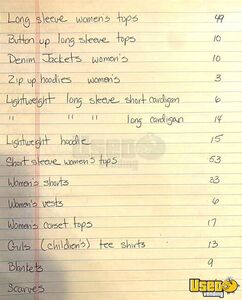 Long sleeve women's tops 49
Button up long sleeve tops 10
Denim Jackets women's 10
Zip up hoodies women's 3
Lightweight long sleeve short cardigan 6
" " " long cardigan 14
Lightweight hoodie 15
Short sleeve women's tops 53
Women's shorts 33
Women's vests 6
Women's corset tops 17
Girls (children's) tee shirts 13
Blankets 9
Scarves
Used
vending